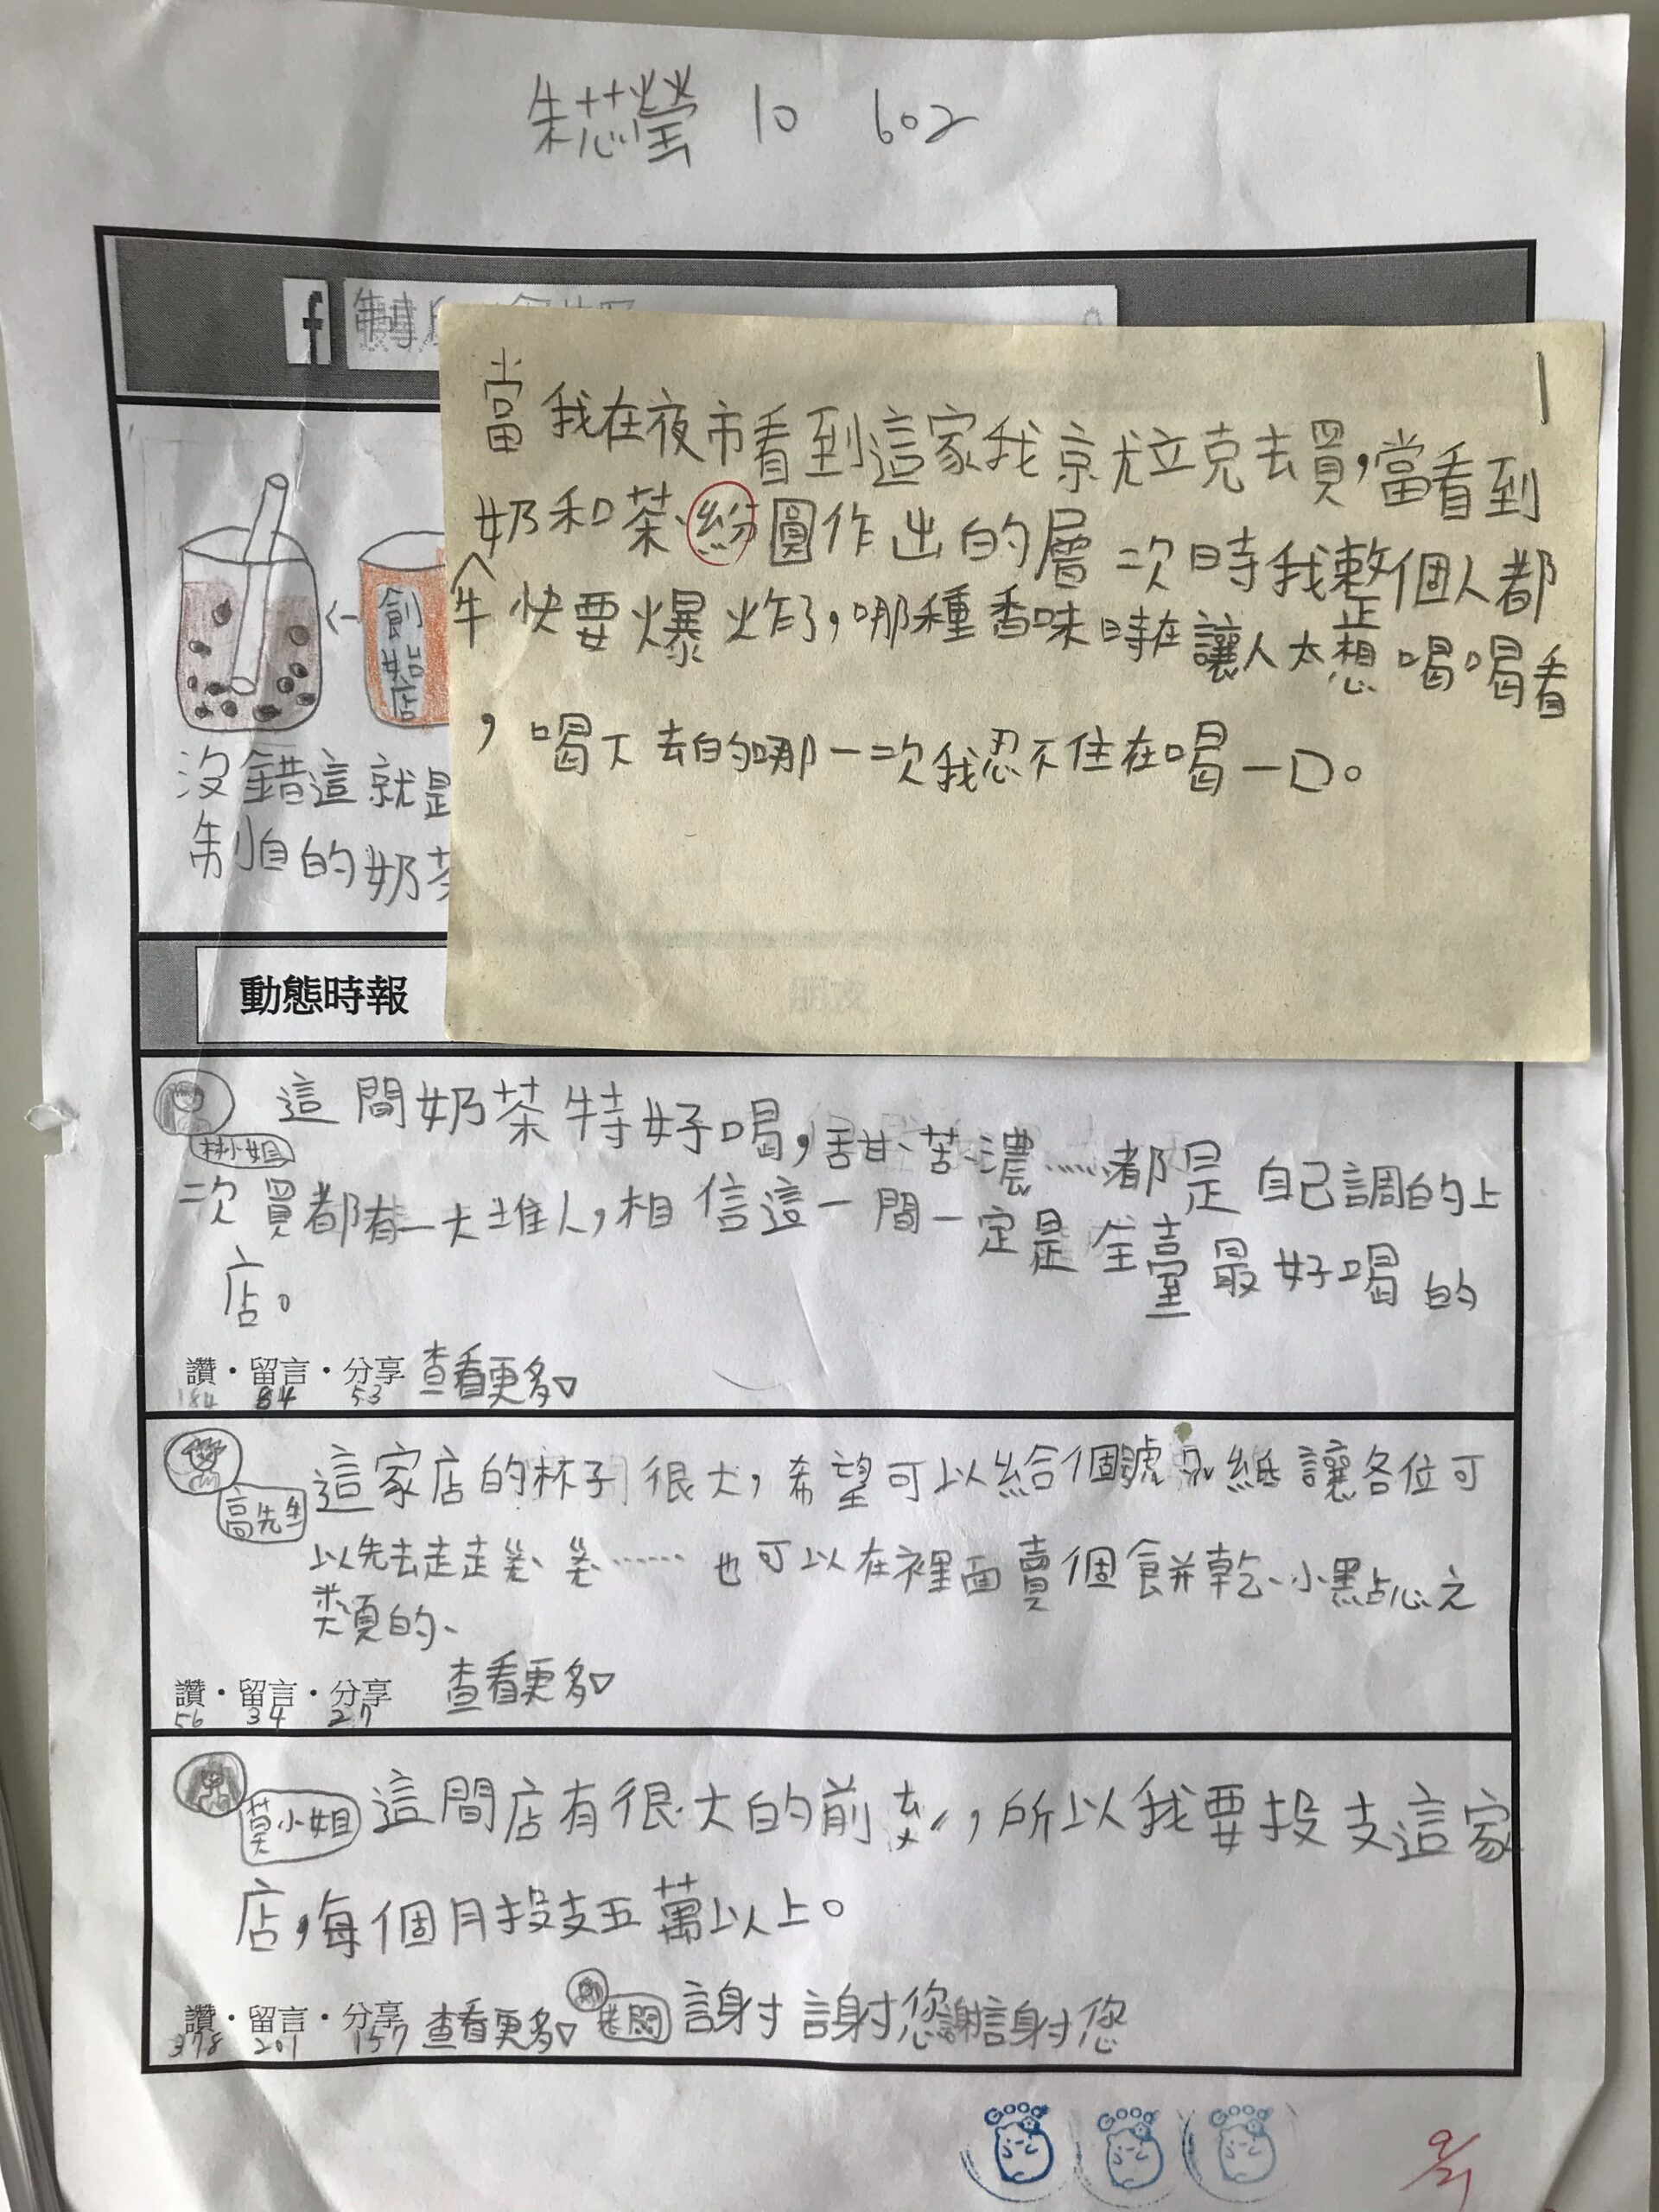 朱芯瑩 10 602
f
當我在夜市看到這家我就立克去買,當看到
牛奶和茶、紛圓作出的層次時我整個人都
快要爆炸了,哪種香味時在讓人太想喝喝看
,喝下去的哪一次我忍不住在喝一口。
創始店
沒錯這就是
制自的奶茶
動態時報
林小姐
這間奶茶特好喝,甜、苦、濃......都是自己調的上
次買都有一大堆人,相信這一間一定是全臺最好喝的
店。
讚・留言・分享 查看更多
184 84 53
高先生
這家店的杯子很大,希望可以給個號紙讓各位可
以先去走走 ...... 也可以在裡面賣個餅乾、小點心之
類的、
讚・留言・分享 查看更多
56 34 27
莫小姐
這間店有很大的前,所以我要投支這家
店,每個月投支五萬以上。
讚・留言・分享 查看更多 老闆 謝謝您謝謝您
378 201 157
GOOD GOOD GOOD
9/21